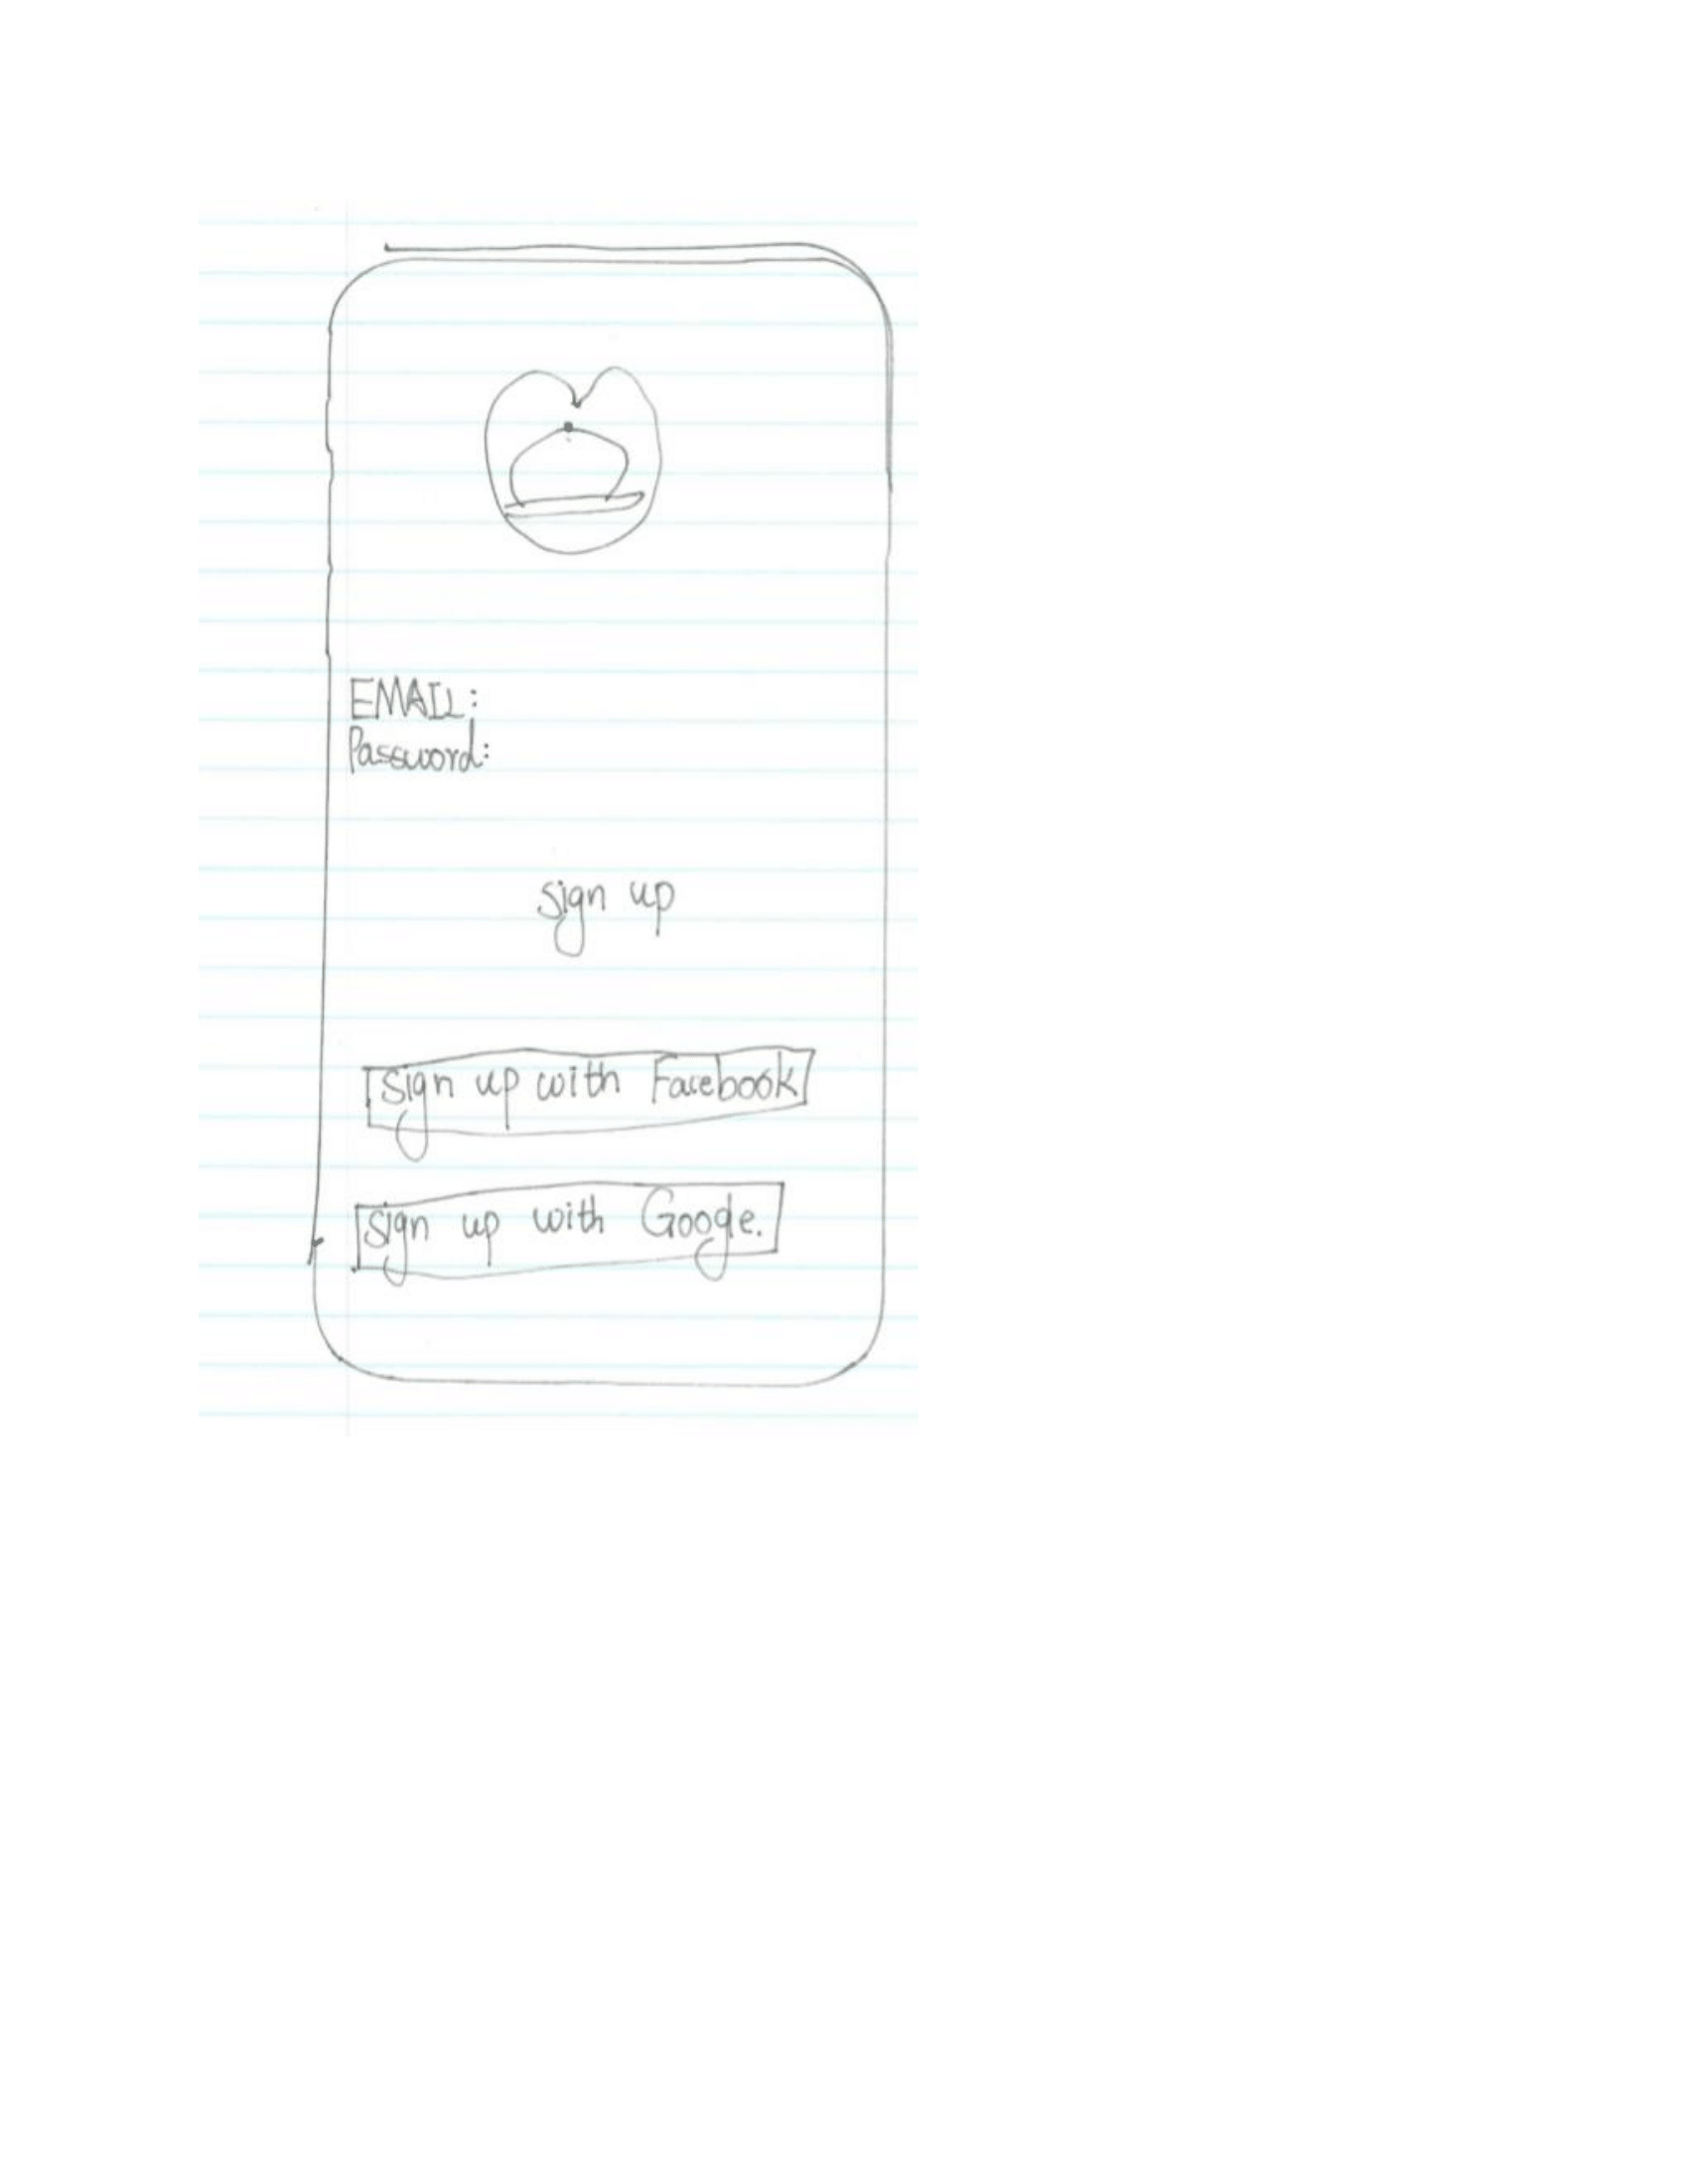 EMAIL:
Password:
sign up
sign up with Facebook
sign up with Google.